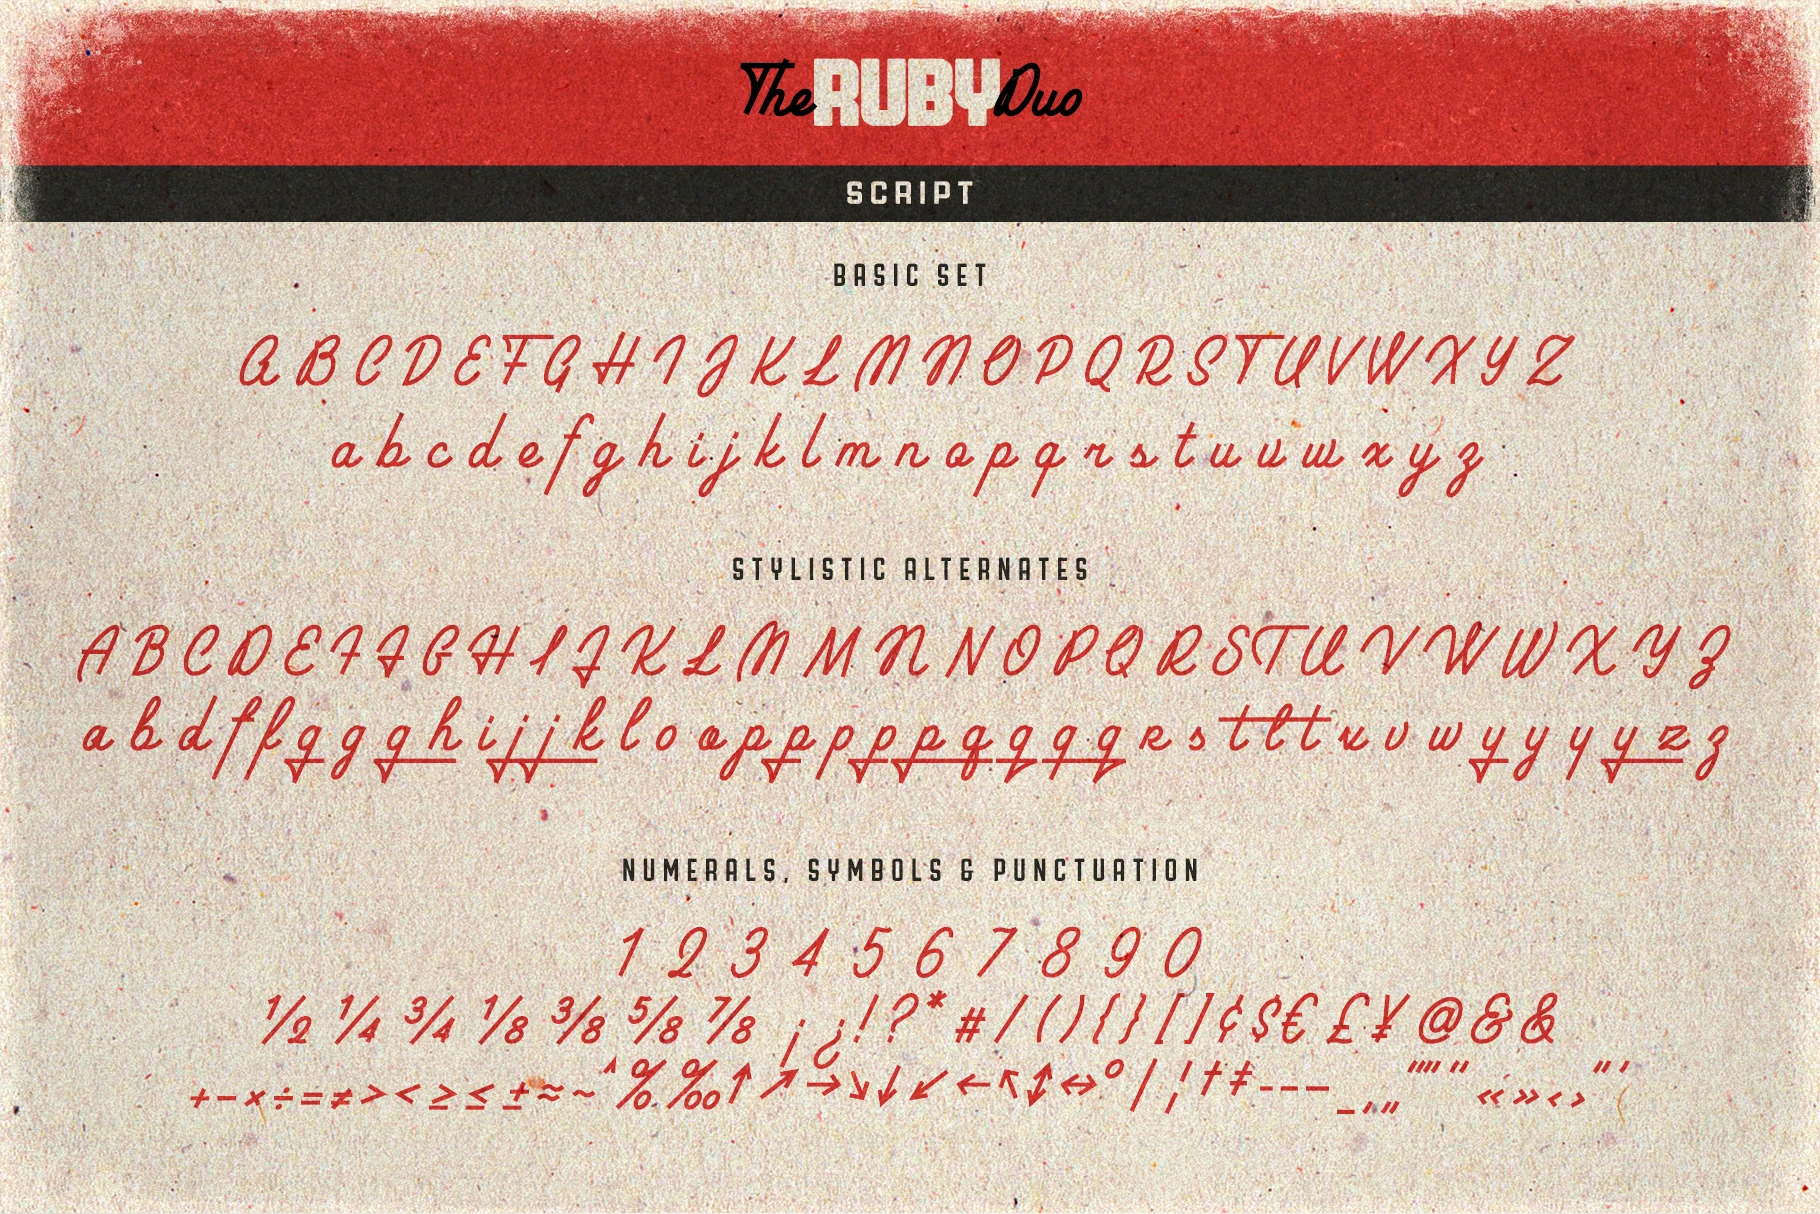 The RUBY Duo
SCRIPT
BASIC SET
A B C D E F G H I J K L M N O P Q R S T U V W X Y Z
a b c d e f g h i j k l m n o p q r s t u v w x y z
STYLISTIC ALTERNATES
A B C D E F F G H I J K L M M N N O P Q R S T U V W W X Y Z
a b d f f g g g h i j j k l o o p p p p p q q q q r s t t t u v w y y y y z z
NUMERALS, SYMBOLS & PUNCTUATION
1 2 3 4 5 6 7 8 9 0
½ ¼ ¾ ⅛ ⅜ ⅝ ⅞ ¡ ¿ ! ? * # / ( ) { } [ ] ¢ $ € £ ¥ @ & &
+ − × ÷ = ≠ > < ≥ ≤ ± ≈ ~ ^ % ‰ ↑ ↗ → ↘ ↓ ↙ ← ↖ ↕ ↔ ° | ¦ † ‡ - – — _ ‚ „ “ ” « » ‹ › " '